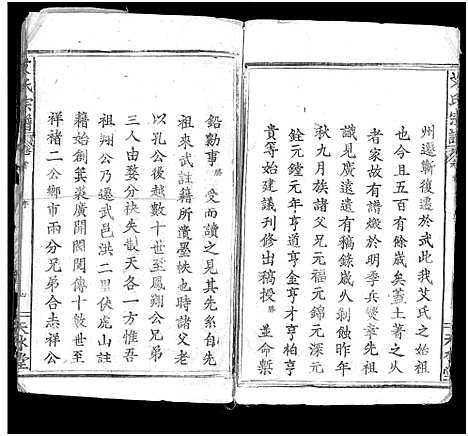 艾氏宗譜
州遷蘄復遷於武此我艾氏之始祖
也今且五百有餘歲矣蓋土著之久
者家故有譜燬於明季兵燹幸先祖
識見廣遠遺有稿錄歲久剝蝕昨年
秋九月族諸父兄元福元錦元深元
銓元鏜元年亨道亨金亨才元楨元
貴等始建議刊修出稿授勝並命槧
鉛勷事勝受而讀之見其先系自先
祖來武註籍所遺墨帙也時諸父老
以孔公後越數十世至鳳翔公兄弟
三人由婺分袂失製天各一方惟吾
祖翔公乃遷武邑洪二里伏虎山註
籍始創箕裘廣開閥閱傳十數世至
祥褚二公鄉市兩分兄弟合志祥公
氏宗譜
天水堂